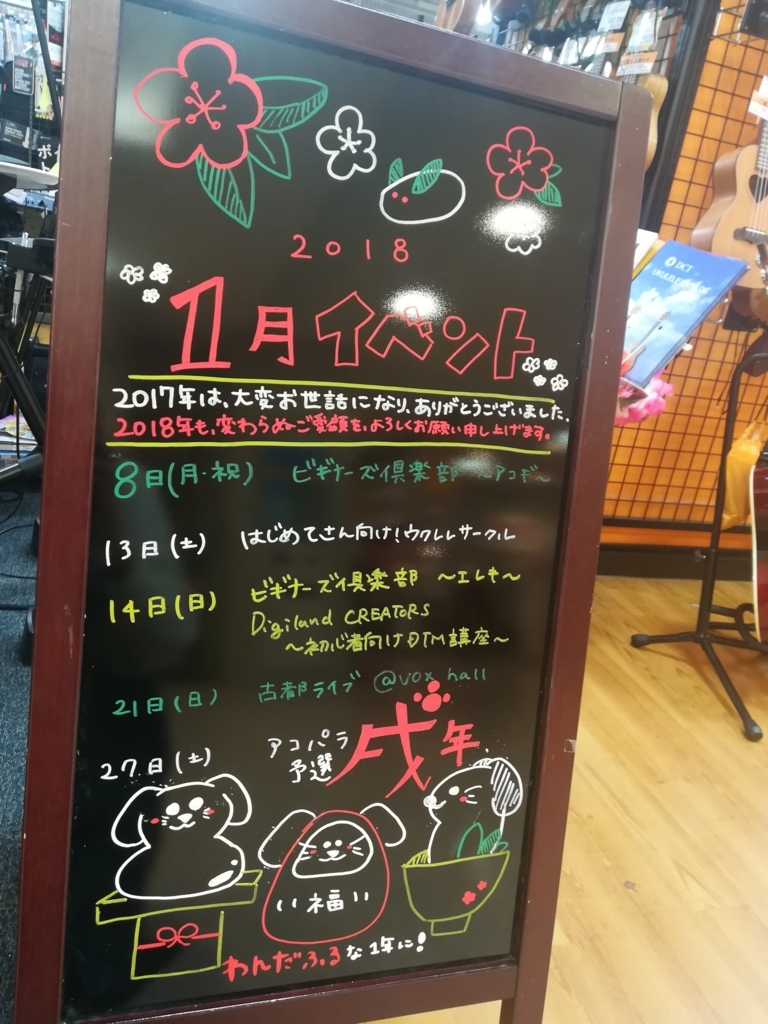 2018
1月イベント
2017年は、大変お世話になり、ありがとうございました。
2018年も、変わらぬご愛顧を、よろしくお願い申し上げます。
8日(月・祝) ビギナーズ倶楽部 〜アコギ〜
13日(土) はじめてさん向け!ウクレレサークル
14日(日) ビギナーズ倶楽部 〜エレキ〜
Digiland CREATORS
〜初心者向けDTM講座〜
21日(日) 古都ライブ @vox hall
27日(土) アコパラ
予選
戌年
福
わんだふるな1年に!